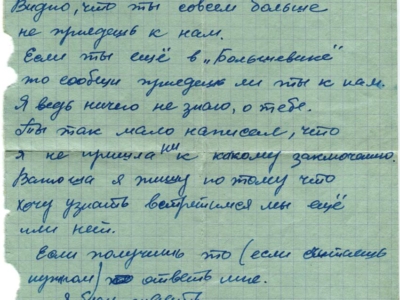 Видно, что ты совсем больше
не приедешь к нам.
Если ты ещё в „Большевике"
то сообщи приедешь ли ты к нам.
Я ведь ничего не знаю, о тебе.
Ты так мало написал, что
я не пришла ни к какому заключению.
Ватоша я пишу потому что
хочу узнать встретимся мы ещё
или нет.
Если получишь это (если считаешь
нужном) ответь мне.
Я